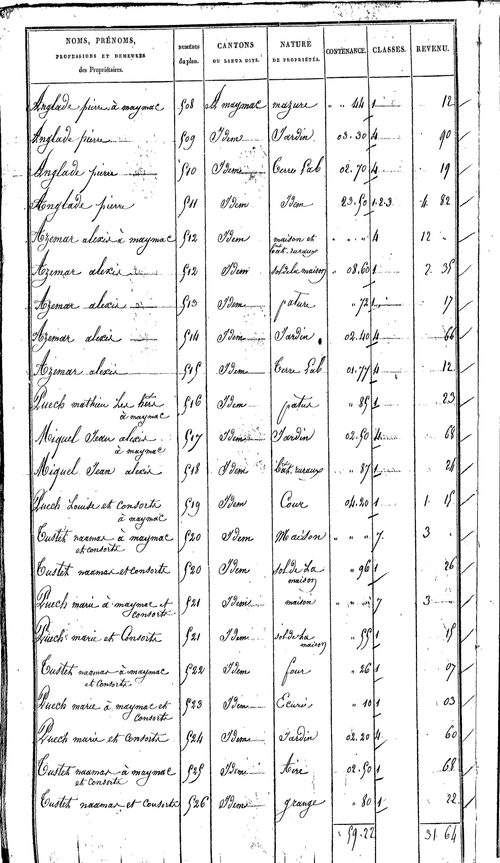 NOMS, PRÉNOMS, PROFESSIONS ET DEMEURES des Propriétaires. NUMÉROS du plan. CANTONS OU LIEUX DITS. NATURE DE PROPRIÉTÉS. CONTENANCE. CLASSES. REVENU.
Anglade pierre à maymac 508 A maymac mazure " " 44 1 12
Anglade pierre 509 Idem Jardin 03.30 4 90
Anglade pierre 510 Idem Terre Lab 02.70 4 19
Anglade pierre 511 Idem Idem 23.50 1.2.3 4. 82
Azemar alexis à maymac 512 Idem maison et bât. ruraux " " " 4 12 "
Azemar alexis 512 Idem sol de la maison " 08.60 1 2. 35
Azemar alexis 513 Idem pature " 72 1 17
Azemar alexis 514 Idem Jardin 02.40 4 66
Azemar alexis 515 Idem Terre Lab 01.77 4 12
Puech mathieu Les hérs à maymac 516 Idem patus " 85 1 23
Miquel Jean alexis à maymac 517 Idem Jardin 02.50 4 68
Miquel Jean alexis 518 Idem bât. ruraux " 87 1 24
Puech Louise et consorts à maymac 519 Idem Cour 04.20 1 1. 15
Custet naamas à maymac et consorts 520 Idem Maison " " " 7. 3 "
Custet naamas et consorts 520 Idem sol de La maison " 96 1 26
Puech marie à maymac et consorts 521 Idem maison " " " 7 3
Puech marie et Consorts 521 Idem sol de La maison " 55 1 15
Custet naamas à maymac et consorts 522 Idem four " 26 1 07
Puech marie à maymac et consorts 523 Idem Ecurie " 10 1 03
Puech marie et consorts 524 Idem Jardin 02.20 4 60
Custet naamas à maymac et consorts 525 Idem Aire 02.50 1 68
Custet naamas et consorts 526 Idem grange " 80 1 22
" 59.22 31 64